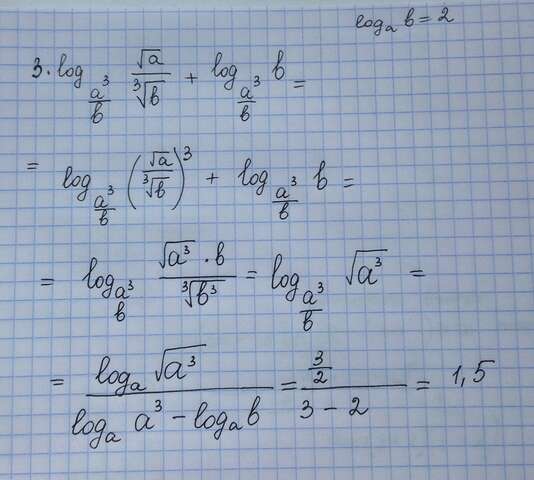 logₐ b = 2
3 · log_{a³/b} √a/∛b + log_{a³/b} b =
= log_{a³/b} (√a/∛b)³ + log_{a³/b} b =
= log_{a³/b} (√a³ · b)/∛b³ = log_{a³/b} √a³ =
= (logₐ √a³)/(logₐ a³ − logₐ b) = (3/2)/(3 − 2) = 1,5